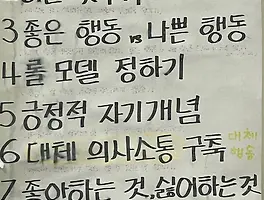 3 좋은 행동 vs 나쁜 행동
4 롤 모델 정하기
5 긍정적 자기개념
6 대체 의사소통 구축 대체
행동
7 좋아하는 것, 싫어하는것